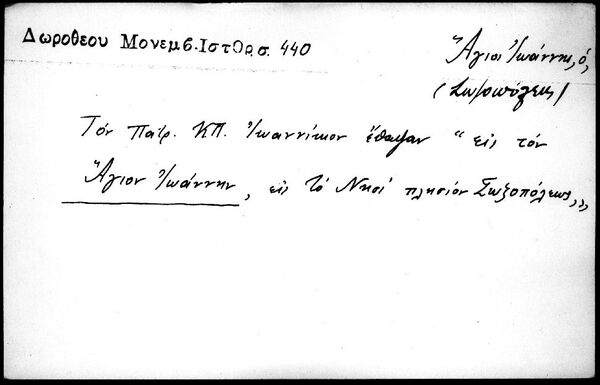 Δωροθεου Μονεμβ. Ιστ Ορσ. 440
Ἅγιος Ἰωάννης, ὁ,
(Σωζοπόλεως)
Τόν Πατρ. ΚΠ. Ἰωαννίκιον ἔθαψαν "εἰς τόν
Ἅγιον Ἰωάννην, εἰς τό Νησί πλησίον Σωζοπόλεως,,